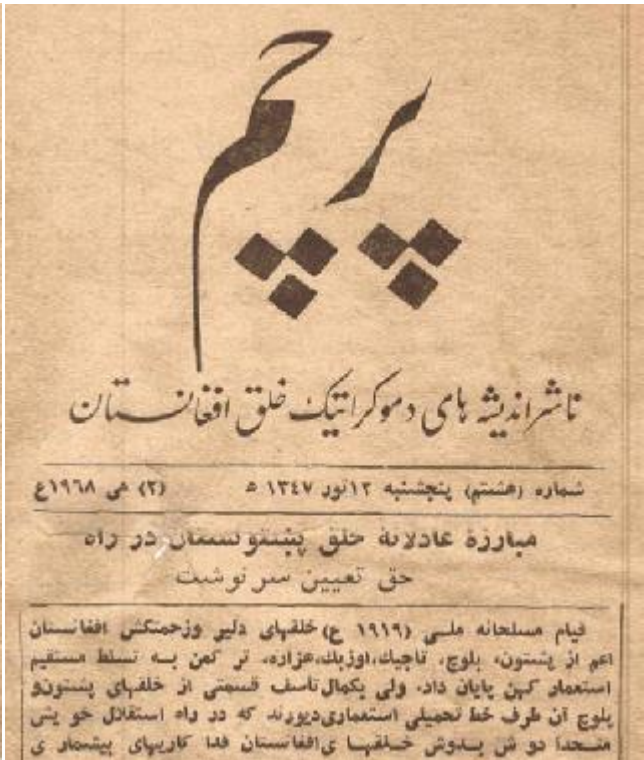 پرچم
ناشر اندیشه های دموکراتیک خلق افغانستان
شماره (هشتم) پنجشنبه ۱۲ ثور ۱۳۴۷ ه (۲) می ۱۹۶۸ع
مبارزهٔ عادلانهٔ خلق پښتونستان در راه
حق تعیین سرنوشت
قیام مسلحانه ملی (۱۹۱۹ ع) خلقهای دلیر وزحمتکش افغانستان
اعم از پشتون، بلوچ، تاجیک، اوزبك، هزاره، تر کمن به تسلط مستقیم
استعمار کهن پایان داد، ولی بکمال تاسف قسمتی از خلقهای پشتون و
بلوچ آن طرف خط تحمیلی استعماری دیورند که در راه استقلال خو یش
متحداً دو ش بدوش خلقها ی افغانستان فدا کاریهای بیشمار ی